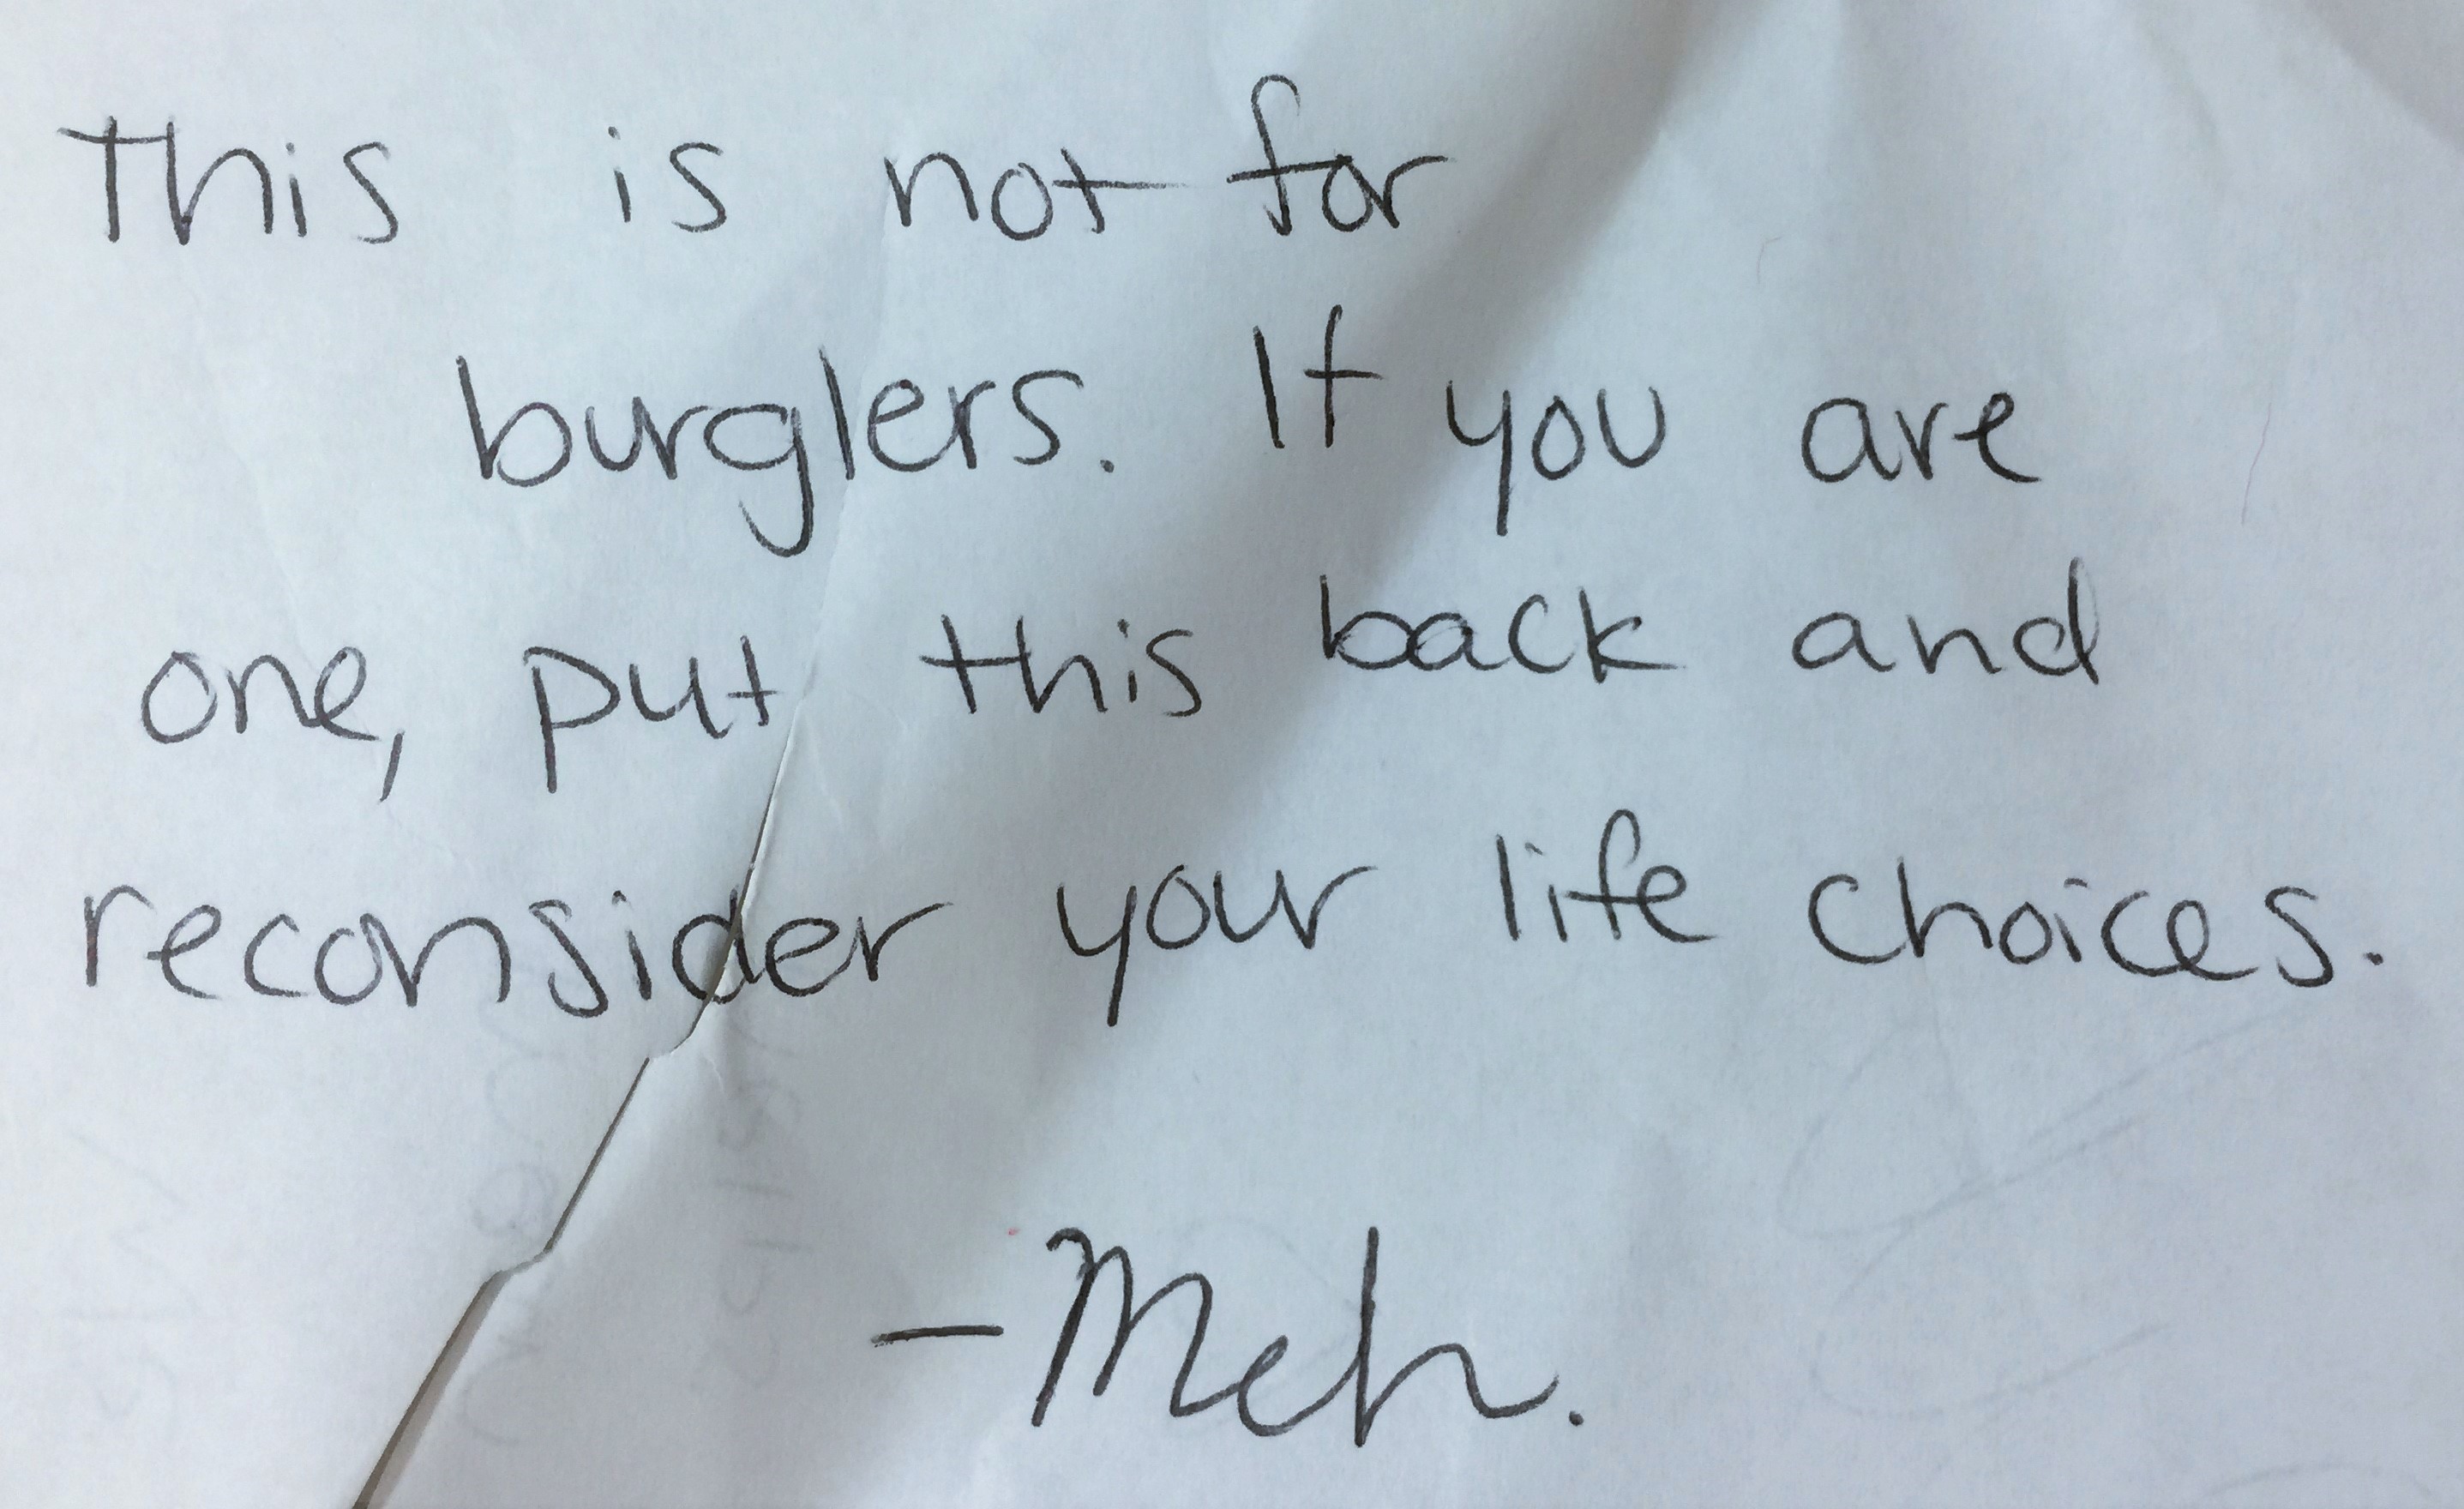 This is not for
burglers. If you are
one, put this back and
reconsider your life choices.
-Meh.